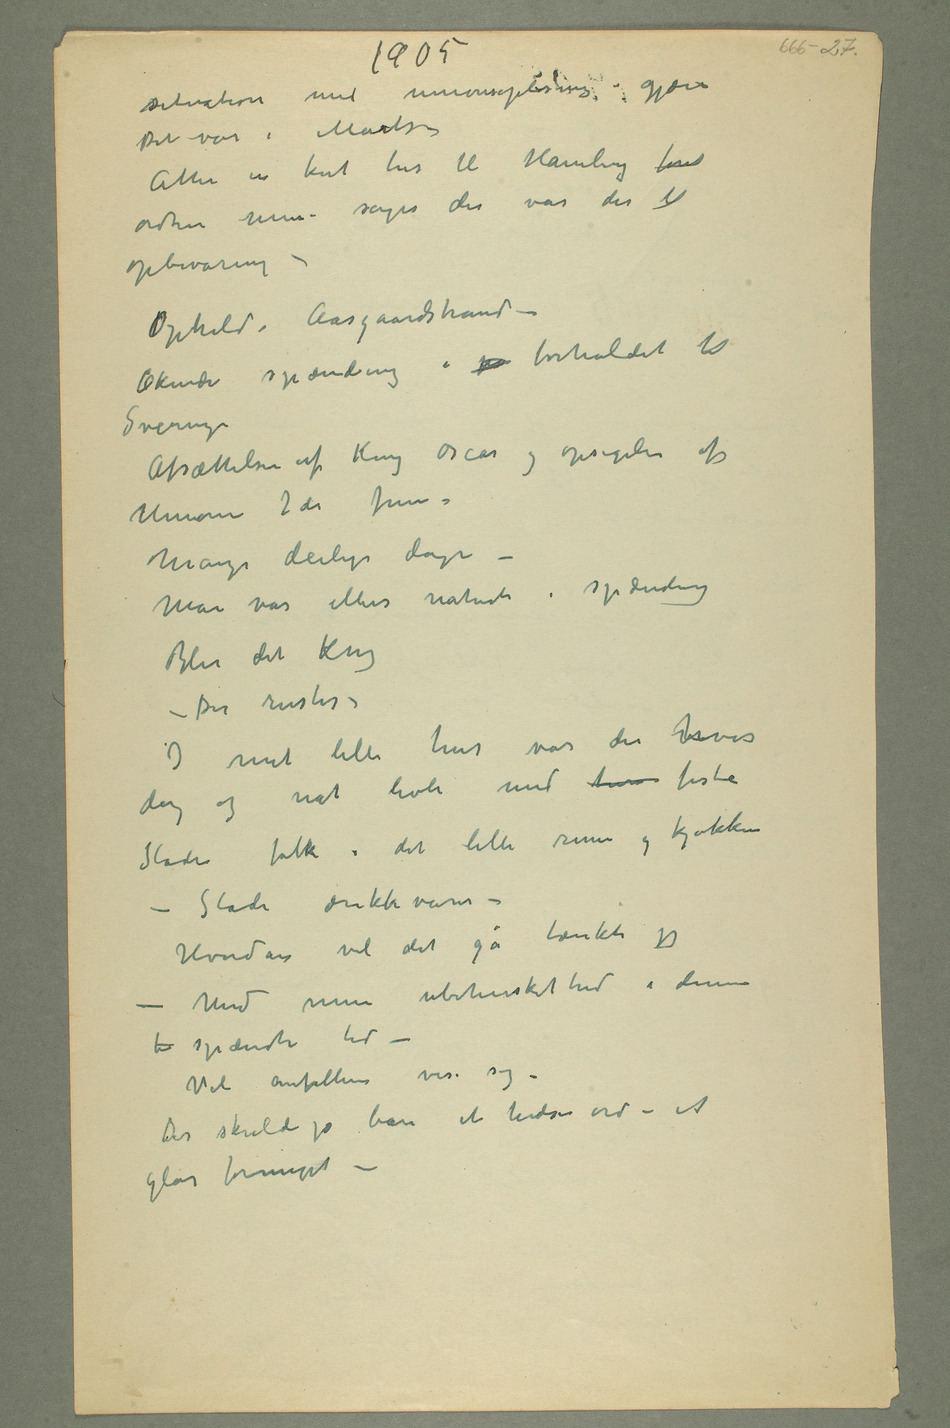 1905
666-27.
situation med unionsopløsning i gjære
Det var i Marts –
Atter en kort tur til Hamburg for at
ordne mine sager der var der til
opbevaring –
Ophold i Aasgaardstrand –
Økende spænding i forholdet til
Sverrige
Afsættelsen af Kong Oscar og opsigelse af
Unionen 7de juni
Mange deilige dage –
Man var ellers natur i spænding
Blir det Krig
– Der rustes –
I mit lille hus var der
dag og nat livlig med feste
Glade folk i det lille rum og kjøkken
– Glade drikkevarer –
Hvordan vil det gå tænkte jeg
– Med min ubeherskethed i denne
spændte tid –
Vil anfallene vise sig –
Der skulde jo bare et hidsig ord – et
glas formeget –